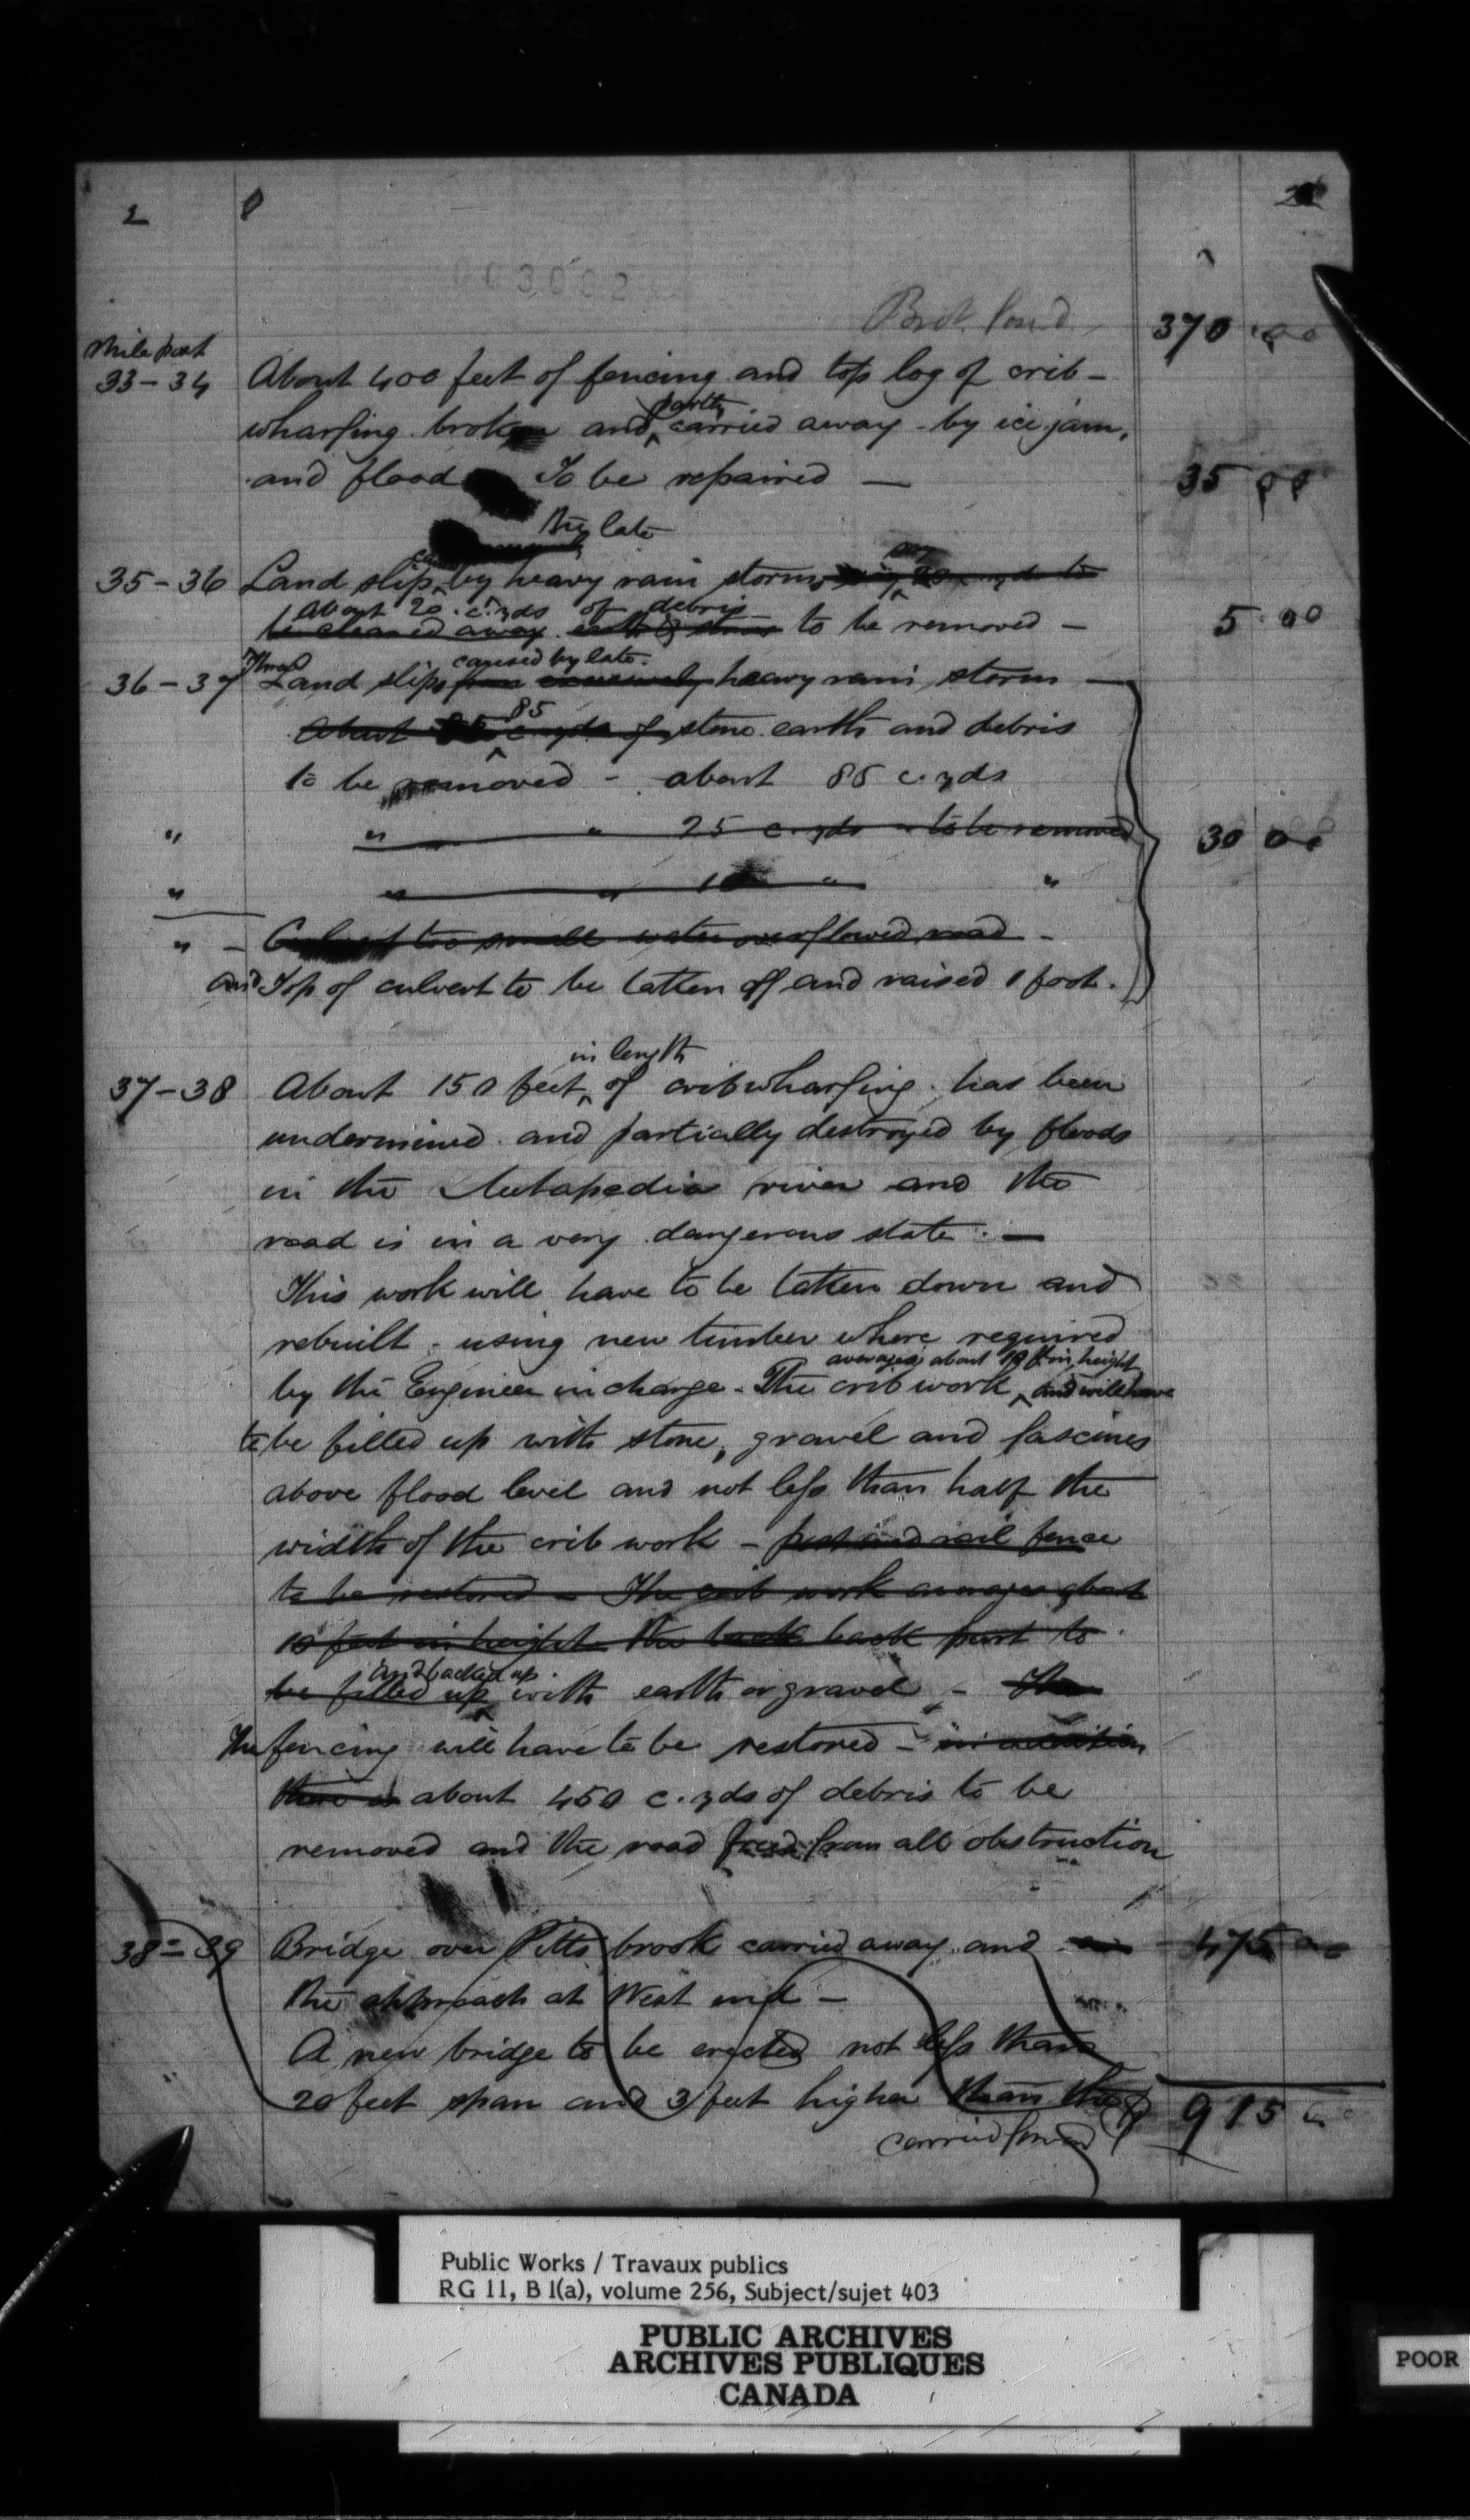 2
003082
Brot ford 370 00
Mile post
33-34 About 400 feet of fencing and top log of crib-
partly
wharfing broken and carried away - by ice jam,
and flood To be repaired — 35 00
the late
35-36 Land slip by heavy rain storm
about 20 c. yds of debris
be cleared away earth & stones to be removed — 5 00
Three caused by late
36-37 Land slips from excessively heavy rain storm —
85
About c. yds of stone earth and debris
to be removed - about 85 c. yds
" " " 25 c. yds " to be removed 30 00
" " " " "
" - Culvert too small water overflowed road -
and Top of culvert to be taken off and raised 1 foot.
in length
37-38 About 150 feet of cribwharfing has been
undermined and partially destroyed by floods
in the Metapedia river and the
road is in a very dangerous state. —
This work will have to be taken down and
rebuilt - using new timber where required
averages about 10 ft in height
by the Engineer in charge - The crib work and will have
to be filled up with stone, gravel and fascines
above flood level and not less than half the
width of the crib work - post and rail fence
to be restored - The crib work averages about
10 feet in height the back back part to
and backed up
be filled up with earth or gravel - The
The fencing will have to be restored - in addition
there is about 450 c. yds of debris to be
removed and the road freed from all obstruction
38-39 Bridge over Pitts brook carried away and 475 00
the approach at West end -
A new bridge to be erected not less than
20 feet span and 3 feet higher than the
carried forward 915 00
Public Works / Travaux publics
RG 11, B 1(a), volume 256, Subject/sujet 403
PUBLIC ARCHIVES
ARCHIVES PUBLIQUES
CANADA
POOR